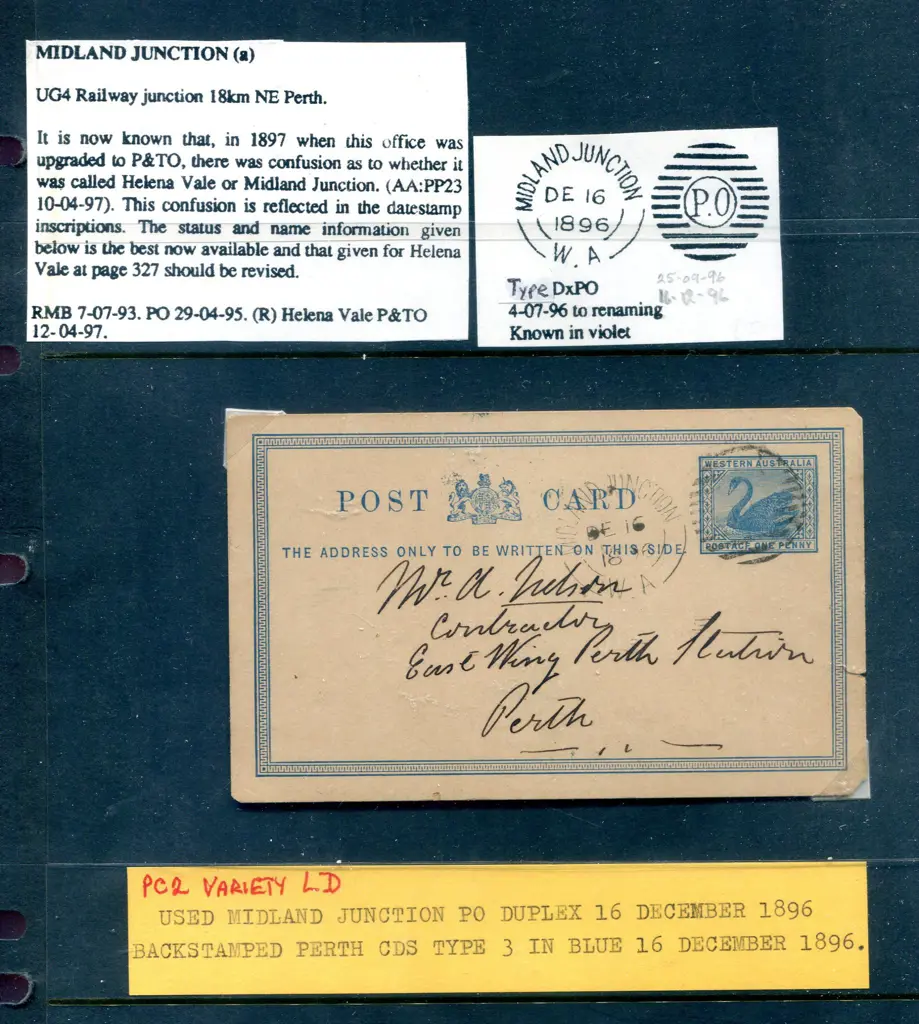 MIDLAND JUNCTION (a)
UG4 Railway junction 18km NE Perth.
It is now known that, in 1897 when this office was
upgraded to P&TO, there was confusion as to whether it
was called Helena Vale or Midland Junction. (AA:PP23
10-04-97). This confusion is reflected in the datestamp
inscriptions. The status and name information given
below is the best now available and that given for Helena
Vale at page 327 should be revised.
RMB 7-07-93. PO 29-04-95. (R) Helena Vale P&TO
12-04-97.
MIDLAND JUNCTION
DE 16
1896
W.A
P.O
25-09-96
16-12-96
Type DxPO
4-07-96 to renaming
Known in violet
WESTERN AUSTRALIA
POSTAGE ONE PENNY
POST CARD
THE ADDRESS ONLY TO BE WRITTEN ON THIS SIDE.
MIDLAND JUNCTION
DE 16
18 96
W.A
Mr. A. Nelson
Contractor
East Wing Perth Station
Perth
PC2 VARIETY LD
USED MIDLAND JUNCTION PO DUPLEX 16 DECEMBER 1896
BACKSTAMPED PERTH CDS TYPE 3 IN BLUE 16 DECEMBER 1896.